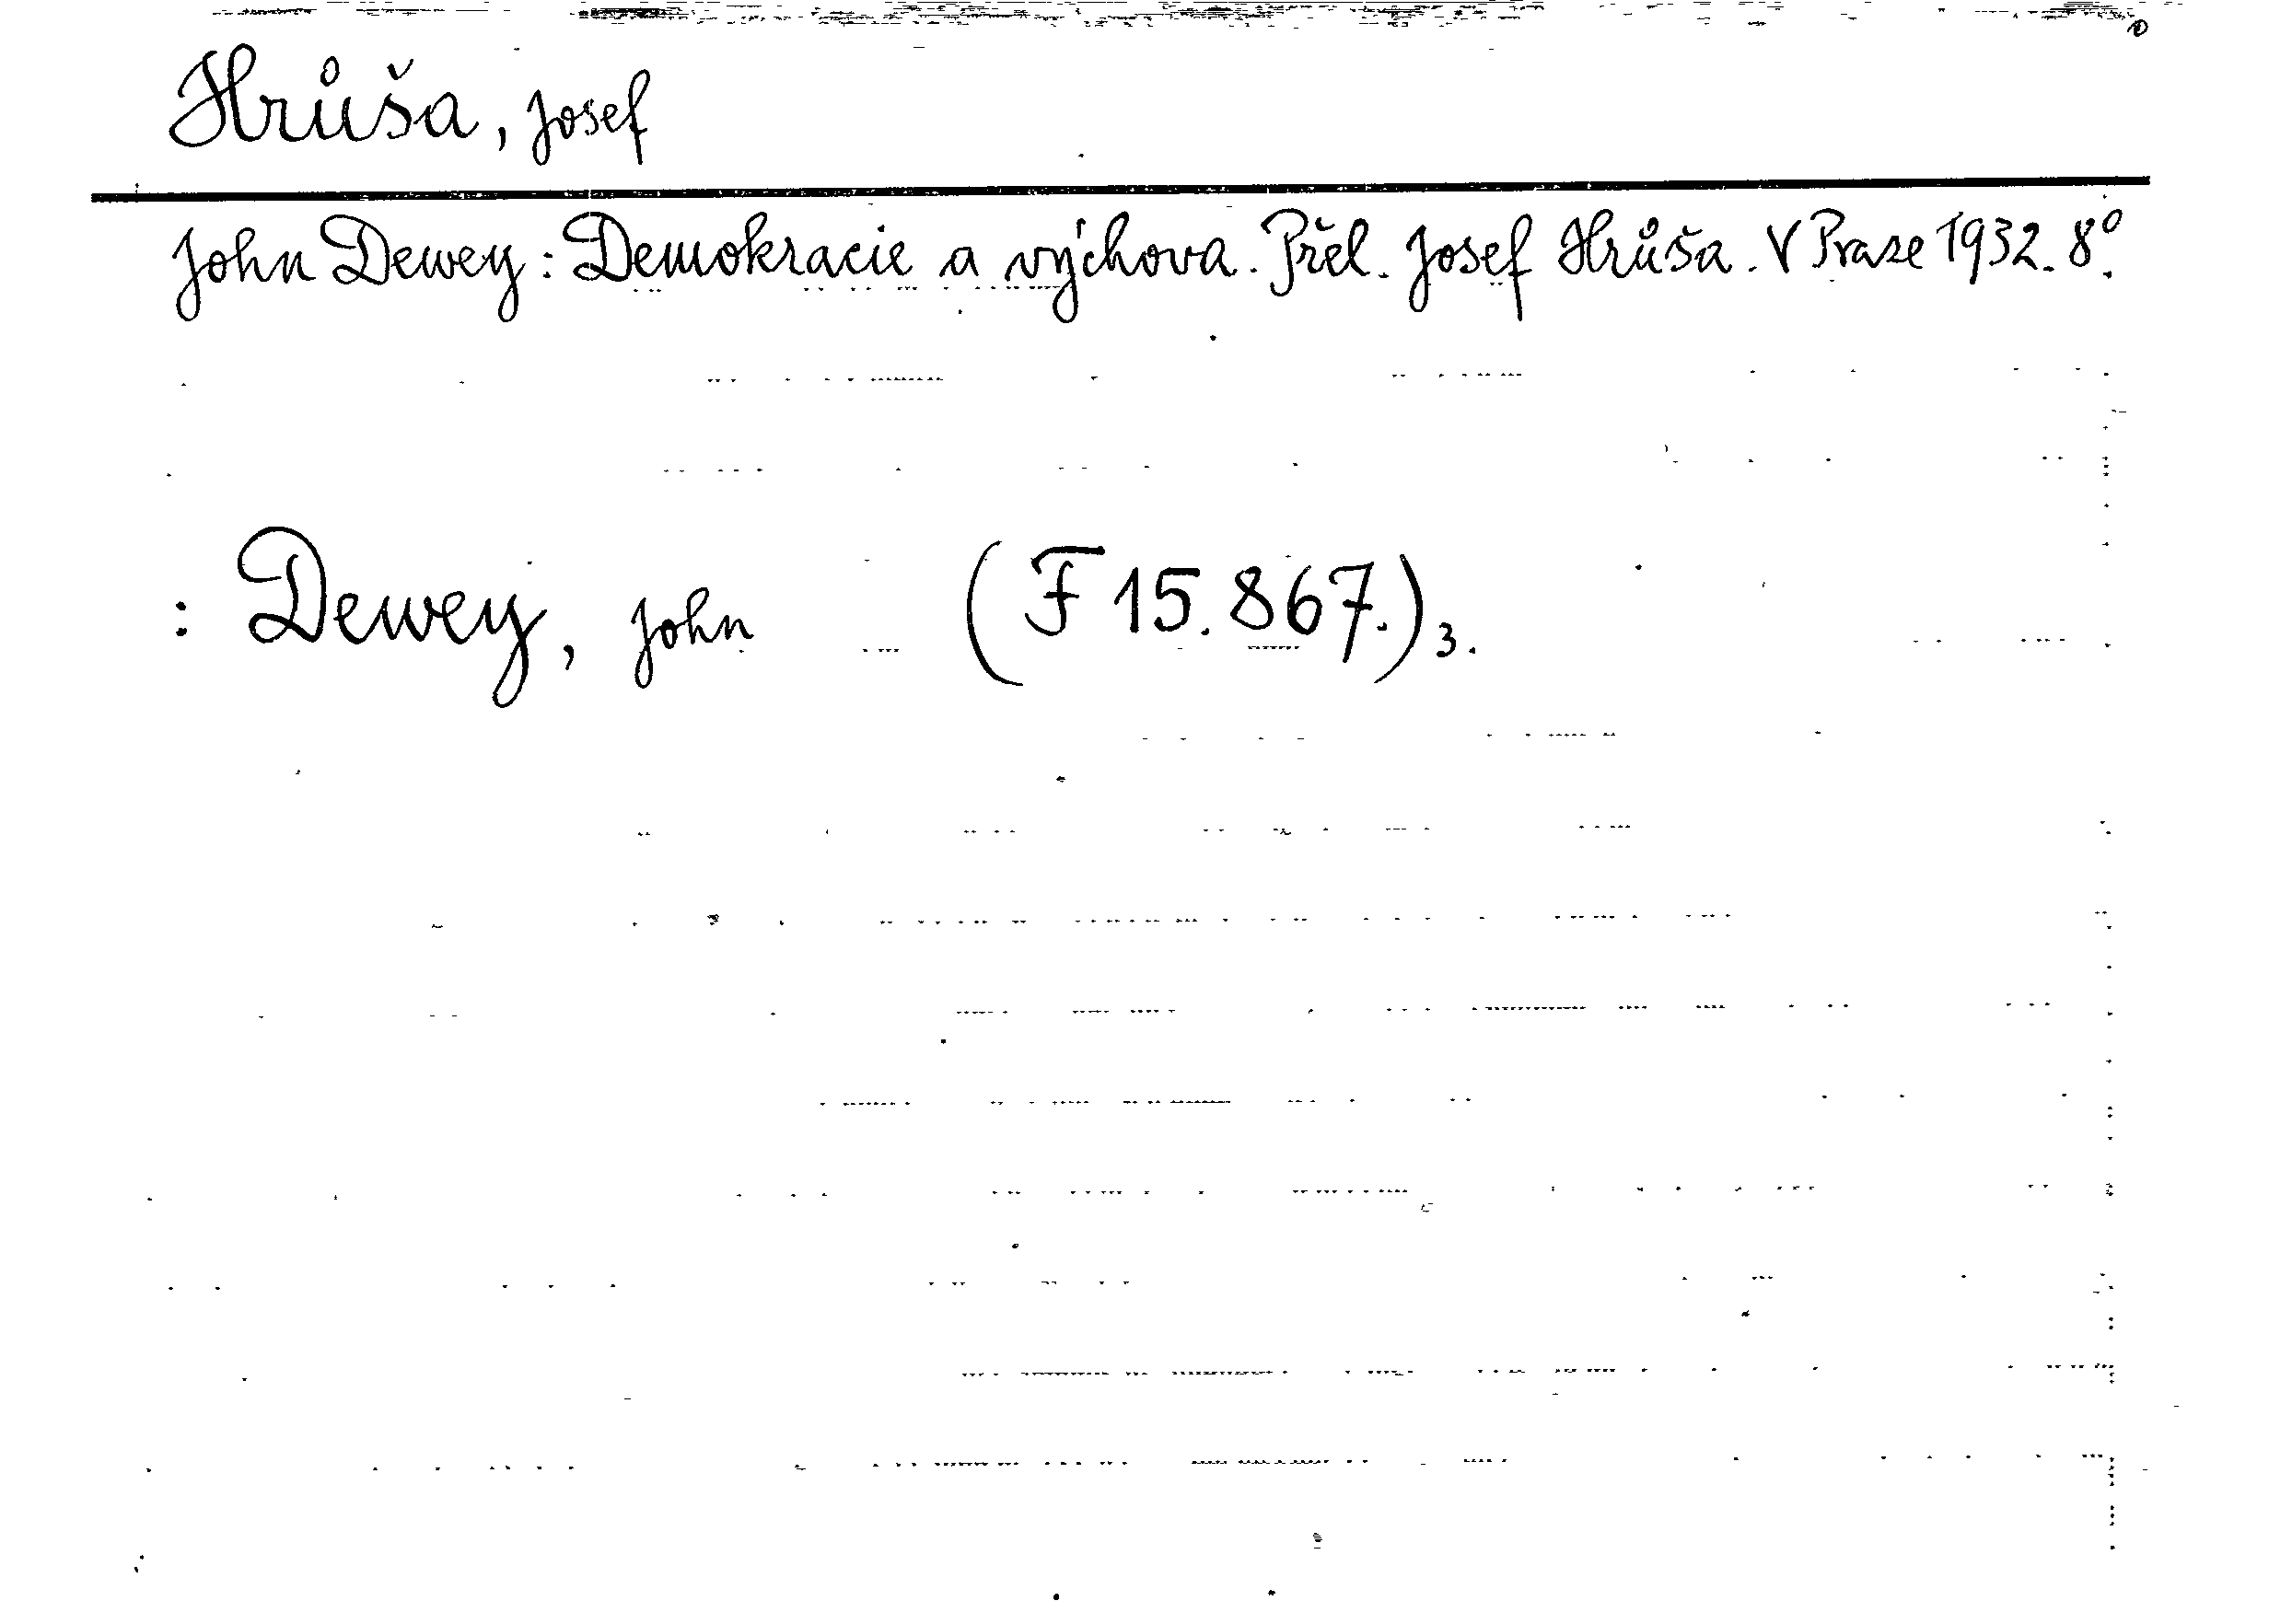 Hrůša, Josef
John Dewey: Demokracie a výchova. Přel. Josef Hrůša. V Praze 1932. 8°.
: Dewey, John (F 15.867.)3.